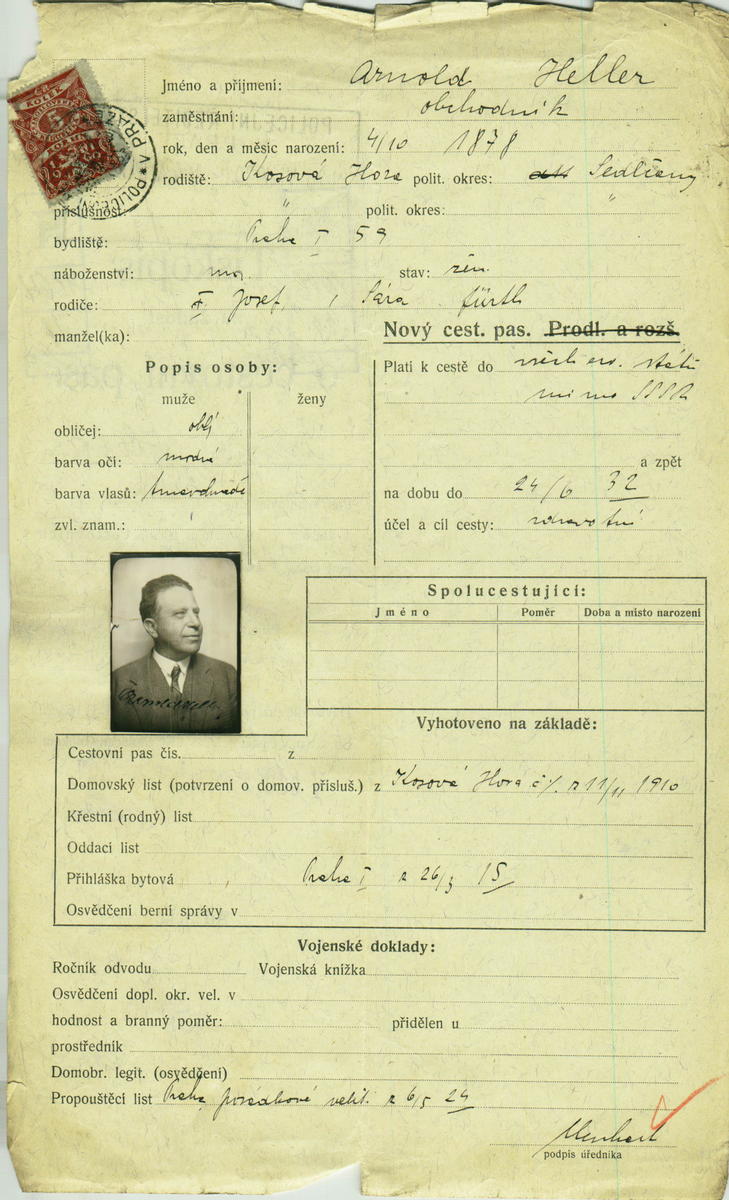 KOLEK
5
V PRAZE * POLICEJNÍ
Jméno a příjmení: Arnold Heller
zaměstnání: obchodník
rok, den a měsíc narození: 4/10 1878
rodiště: Kosová Hora polit. okres: Sedlčany
příslušnost: " polit. okres: "
bydliště: Praha I 59
náboženství: stav: žen.
rodiče: Josef, Sára Fürth
manžel(ka):
Nový cest. pas. Prodl. a rozš.
Popis osoby:
muže ženy
obličej: oblý
barva očí: modré
barva vlasů: tmavohnědé
zvl. znam.:
Platí k cestě do všech ev. států
mimo SSSR
a zpět
na dobu do 24/6 32
účel a cíl cesty: zdravotní
Spolucestující:
Jméno Poměr Doba a místo narození
Vyhotoveno na základě:
Cestovní pas čís. z
Domovský list (potvrzení o domov. přísluš.) z Kosová Hora č/. z 11/11 1910
Křestní (rodný) list
Oddací list
Přihláška bytová Praha I z 26/3 15
Osvědčení berní správy v
Vojenské doklady:
Ročník odvodu Vojenská knížka
Osvědčení dopl. okr. vel. v
hodnost a branný poměr: přidělen u
prostředník
Domobr. legit. (osvědčení)
Propouštěcí list Praha posádkové velit. z 6/5 24
podpis úředníka